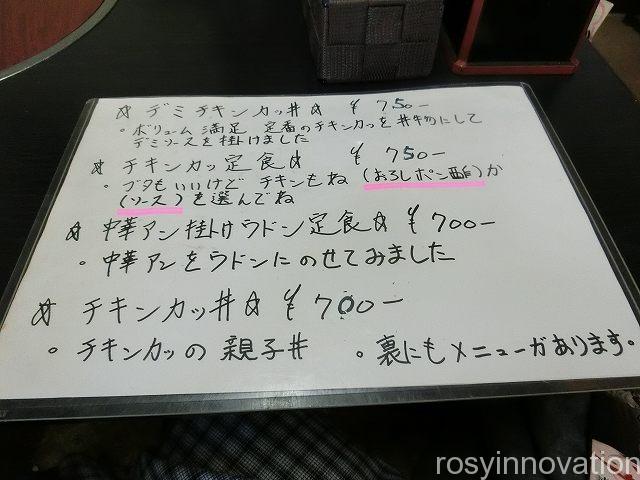 ☆ デミチキンカツ丼☆ ¥750-
・ボリューム満足 定番のチキンカツを丼物にして
デミソースを掛けました
☆ チキンカツ定食☆ ¥750-
・ブタもいいけど チキンもね (おろしポン酢)か
(ソース)を選んでね
☆ 中華アン掛けウドン定食☆ ¥700-
・中華アンをウドンにのせてみました
☆ チキンカツ丼☆ ¥700-
。チキンカツの親子丼 。裏にもメニューがあります。
rosyinnovation